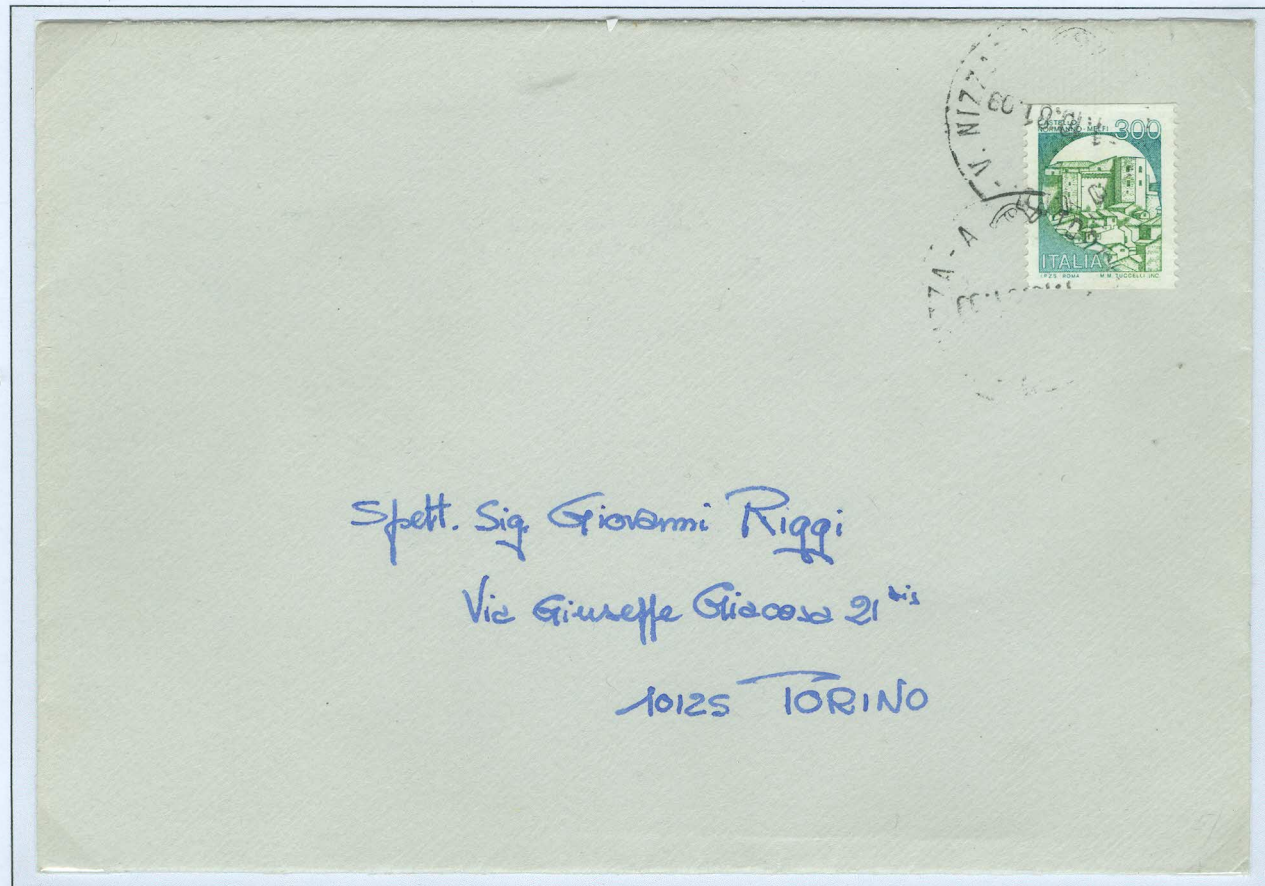 V. NIZZ
CASTELLO 300
NORMANNO - MELFI
ITALIA
I.P.Z.S. ROMA M.M. TUCCELLI INC.
ZZA - A
Spett. Sig. Giovanni Riggi
Via Giuseppe Giacosa 21 bis
10125 TORINO